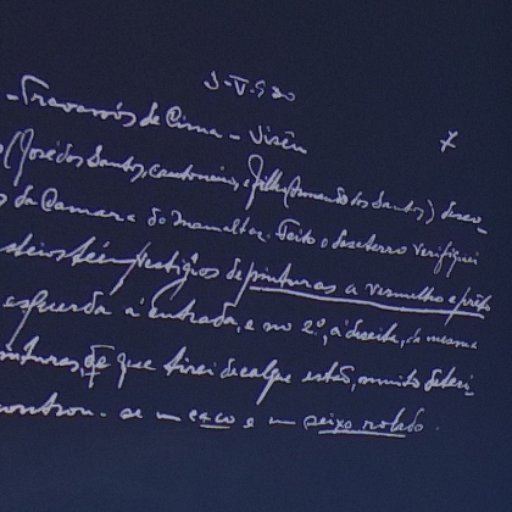 3-V-930
- Travassós de Cima - Viseu
(José dos Santos, cantoneiro, e filho (Armando dos Santos)) desco-
da Camara do mamaltar. Feito o desaterro verifiquei
esteios têm vestigios de pinturas a vermelho e preto
esquerda á entrada, e no 2.º, á direita, da mesma
pinturas, de que tirei decalque estão, muito deteri-
encontrou-se um caco e um seixo rolado.